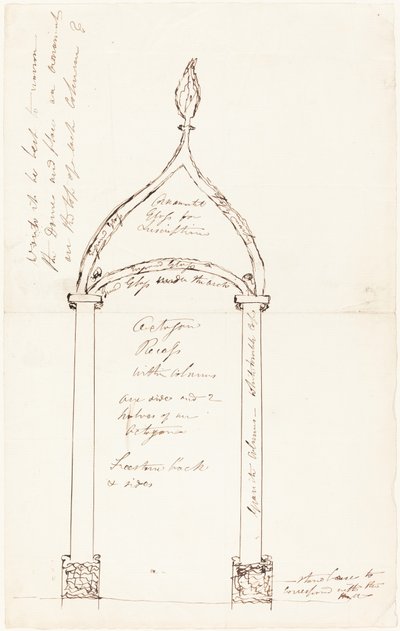 Would it be best to remove
the Dome and place an ornament
on the top of each Column &
Ornamental
Glass for
Inscription
Glass under the arch
Octagon
Recess
with Columns
one side and 2
halves of an
Octagon
Freestone back
& sides
Granite Columns
Stone base to
correspond with the